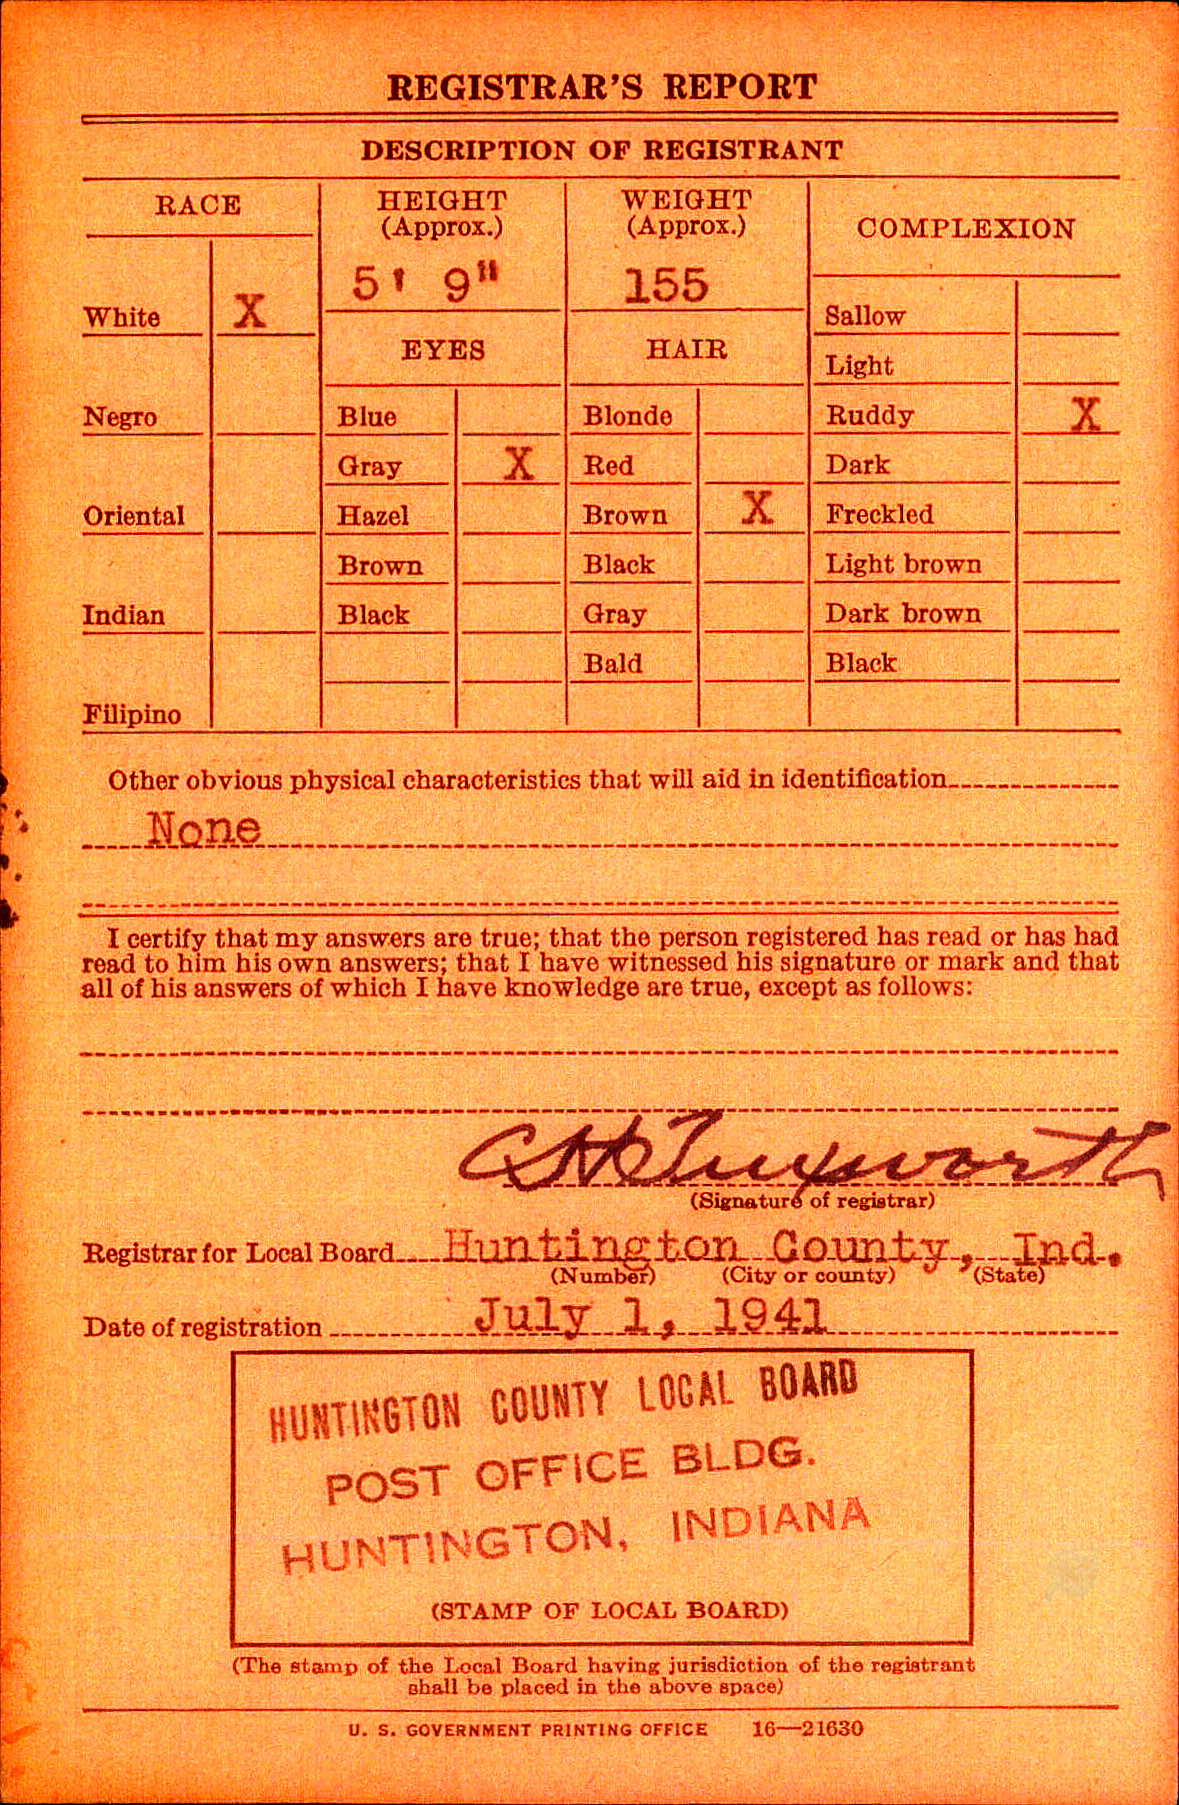 REGISTRAR'S REPORT
DESCRIPTION OF REGISTRANT
RACE
HEIGHT
(Approx.)
WEIGHT
(Approx.)
COMPLEXION
5' 9"
155
White X
Sallow
EYES
HAIR
Light
Negro
Blue
Blonde
Ruddy X
Gray X
Red
Dark
Oriental
Hazel
Brown X
Freckled
Brown
Black
Light brown
Indian
Black
Gray
Dark brown
Bald
Black
Filipino
Other obvious physical characteristics that will aid in identification
None
I certify that my answers are true; that the person registered has read or has had
read to him his own answers; that I have witnessed his signature or mark and that
all of his answers of which I have knowledge are true, except as follows:
(Signature of registrar)
Registrar for Local Board Huntington County, Ind.
(Number) (City or county) (State)
Date of registration July 1, 1941
HUNTINGTON COUNTY LOCAL BOARD
POST OFFICE BLDG.
HUNTINGTON, INDIANA
(STAMP OF LOCAL BOARD)
(The stamp of the Local Board having jurisdiction of the registrant
shall be placed in the above space)
U. S. GOVERNMENT PRINTING OFFICE 16—21630